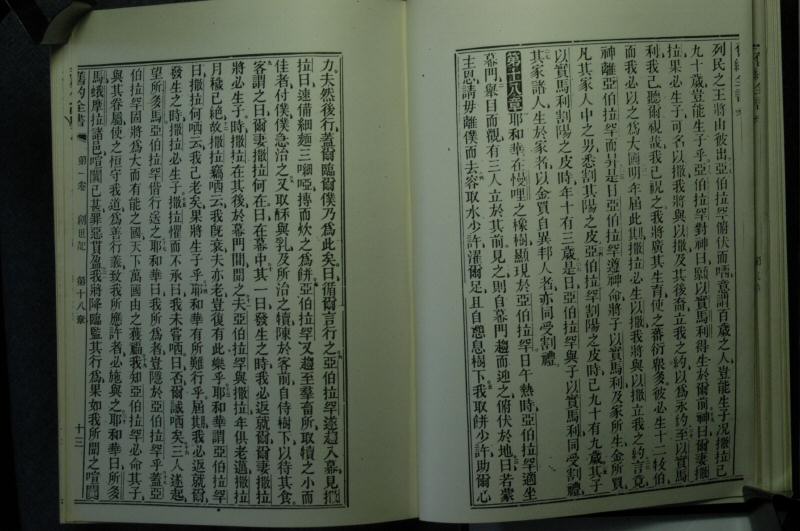 列民之王將由彼出亞伯拉罕俯伏而哂意謂百歲之人豈能生子況撒拉已
九十歲豈能生子乎亞伯拉罕對神曰願以實馬利得生於爾前神曰爾妻撒
拉果必生子可名以撒我將與以撒及其後裔立我之約以為永約至以實馬
利我已聽爾視哉我已祝之我將廣其生育使之蕃衍衆多彼必生十二牧伯
而我必以之為大國明年屆此其撒拉必生以撒我將與以撒立我之約言竟
神離亞伯拉罕而升是日亞伯拉罕遵神命將子以實馬利及家所生金所買
凡其家人中之男悉割其陽之皮亞伯拉罕割陽之皮時已九十有九歲其子
以實馬利割陽之皮時年十有三歲是日亞伯拉罕與子以實馬利同受割禮
其家諸人生於家者以金買自異邦人者亦同受割禮
第十八章 耶和華在慢哩之橡樹顯現於亞伯拉罕日午熱時亞伯拉罕適坐
幕門舉目而觀有三人立於其前見之則自幕門趨而迎之俯伏於地曰若蒙
主恩請毋離僕而去容取水少許濯爾足且自憩息樹下我取餅少許助爾心
力夫然後行蓋爾臨爾僕乃為此矣曰循爾言行之亞伯拉罕遂趨入幕見撒
拉曰速備細麵三嗍啞摶而炊之為餅亞伯拉罕又趨至羣畜所取犢之小而
佳者付僕僕急治之又取酥與乳及所治之犢陳於客前自侍樹下以待其食
客謂之曰爾妻撒拉何在曰在幕中其一曰發生之時我必返就爾爾妻撒拉
將必生子時撒拉在其後於幕門聞聞之夫亞伯拉罕與撒拉年俱老邁撒拉
月穢已絕故撒拉竊哂云我既衰夫亦老豈復有此樂乎耶和華謂亞伯拉罕
曰撒拉何哂云我已老矣果將生子乎耶和華有所難行乎屆其我必返就爾
發生之時撒拉必生子撒拉懼而不承曰我未嘗哂曰否爾誠哂矣三人遂起
望所多馬亞伯拉罕偕行送之耶和華曰我所為者豈隱於亞伯拉罕乎蓋亞
伯拉罕固將為大而有能之國天下萬國由之獲福我知亞伯拉罕必命其子
與其眷屬使之恒守我道為善行義致我所應許者必施與之耶和華曰所多
馬蛾摩拉諸邑喧闐已甚罪惡貫盈我將降臨監其行為果如我所聞之喧闐
舊約全書 第一卷 創世記 第十八章 十三